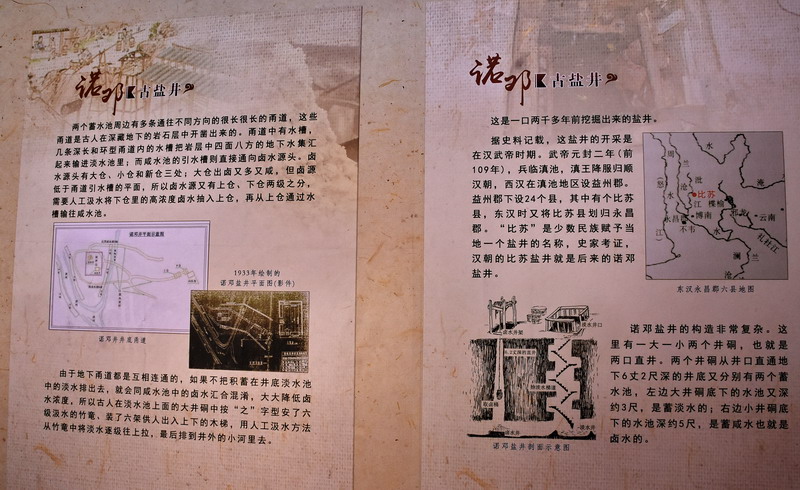 诺邓 古盐井
两个蓄水池周边有多条通往不同方向的很长很长的甬道，这些
甬道是古人在深藏地下的岩石层中开凿出来的。甬道中有水槽，
几条深长和环型甬道内的水槽把岩层中四面八方的地下水集汇
起来输进淡水池里；而咸水池的引水槽则直接通向卤水源头。卤
水源头有大仓、小仓和新仓三处；大仓出卤又多又咸，但卤源
低于甬道引水槽的平面，所以卤水源又有上仓、下仓两级之分，
需要人工汲水将下仓里的高浓度卤水抽入上仓，再从上仓通过水
槽输往咸水池。
诺邓井平面示意图
诺邓井井底甬道
1933年绘制的
诺邓盐井平面图(影件)
由于地下甬道都是互相连通的，如果不把积蓄在井底淡水池
中的淡水排出去，就会同咸水池中的卤水汇合混淆，大大降低卤
水浓度，所以古人在淡水池上面的大井硐中按“之”字型安了六
级汲水的竹竜，装了六架供人出入上下的木梯，用人工汲水方法
从竹竜中将淡水逐级往上拉，最后排到井外的小河里去。
诺邓 古盐井
这是一口两千多年前挖掘出来的盐井。
据史料记载，这盐井的开采是
在汉武帝时期。武帝元封二年（前
109年），兵临滇池，滇王降服归顺
汉朝，西汉在滇池地区设益州郡。
益州郡下设24个县，其中有个比苏
县，东汉时又将比苏县划归永昌
郡。“比苏”是少数民族赋予当
地一个盐井的名称，史家考证，
汉朝的比苏盐井就是后来的诺邓
盐井。
比苏
楪榆
邪龙
云南
博南
永昌郡
不韦
礼社江
澜
沧
江
东汉永昌郡六县地图
诺邓盐井的构造非常复杂。这
里有一大一小两个井硐，也就是
两口直井。两个井硐从井口直通地
下6丈2尺深的井底又分别有两个蓄
水池，左边大井硐底下的水池又深
约3尺，是蓄淡水的；右边小井硐底
下的水池深约5尺，是蓄咸水也就是
卤水的。
诺邓盐井剖面示意图